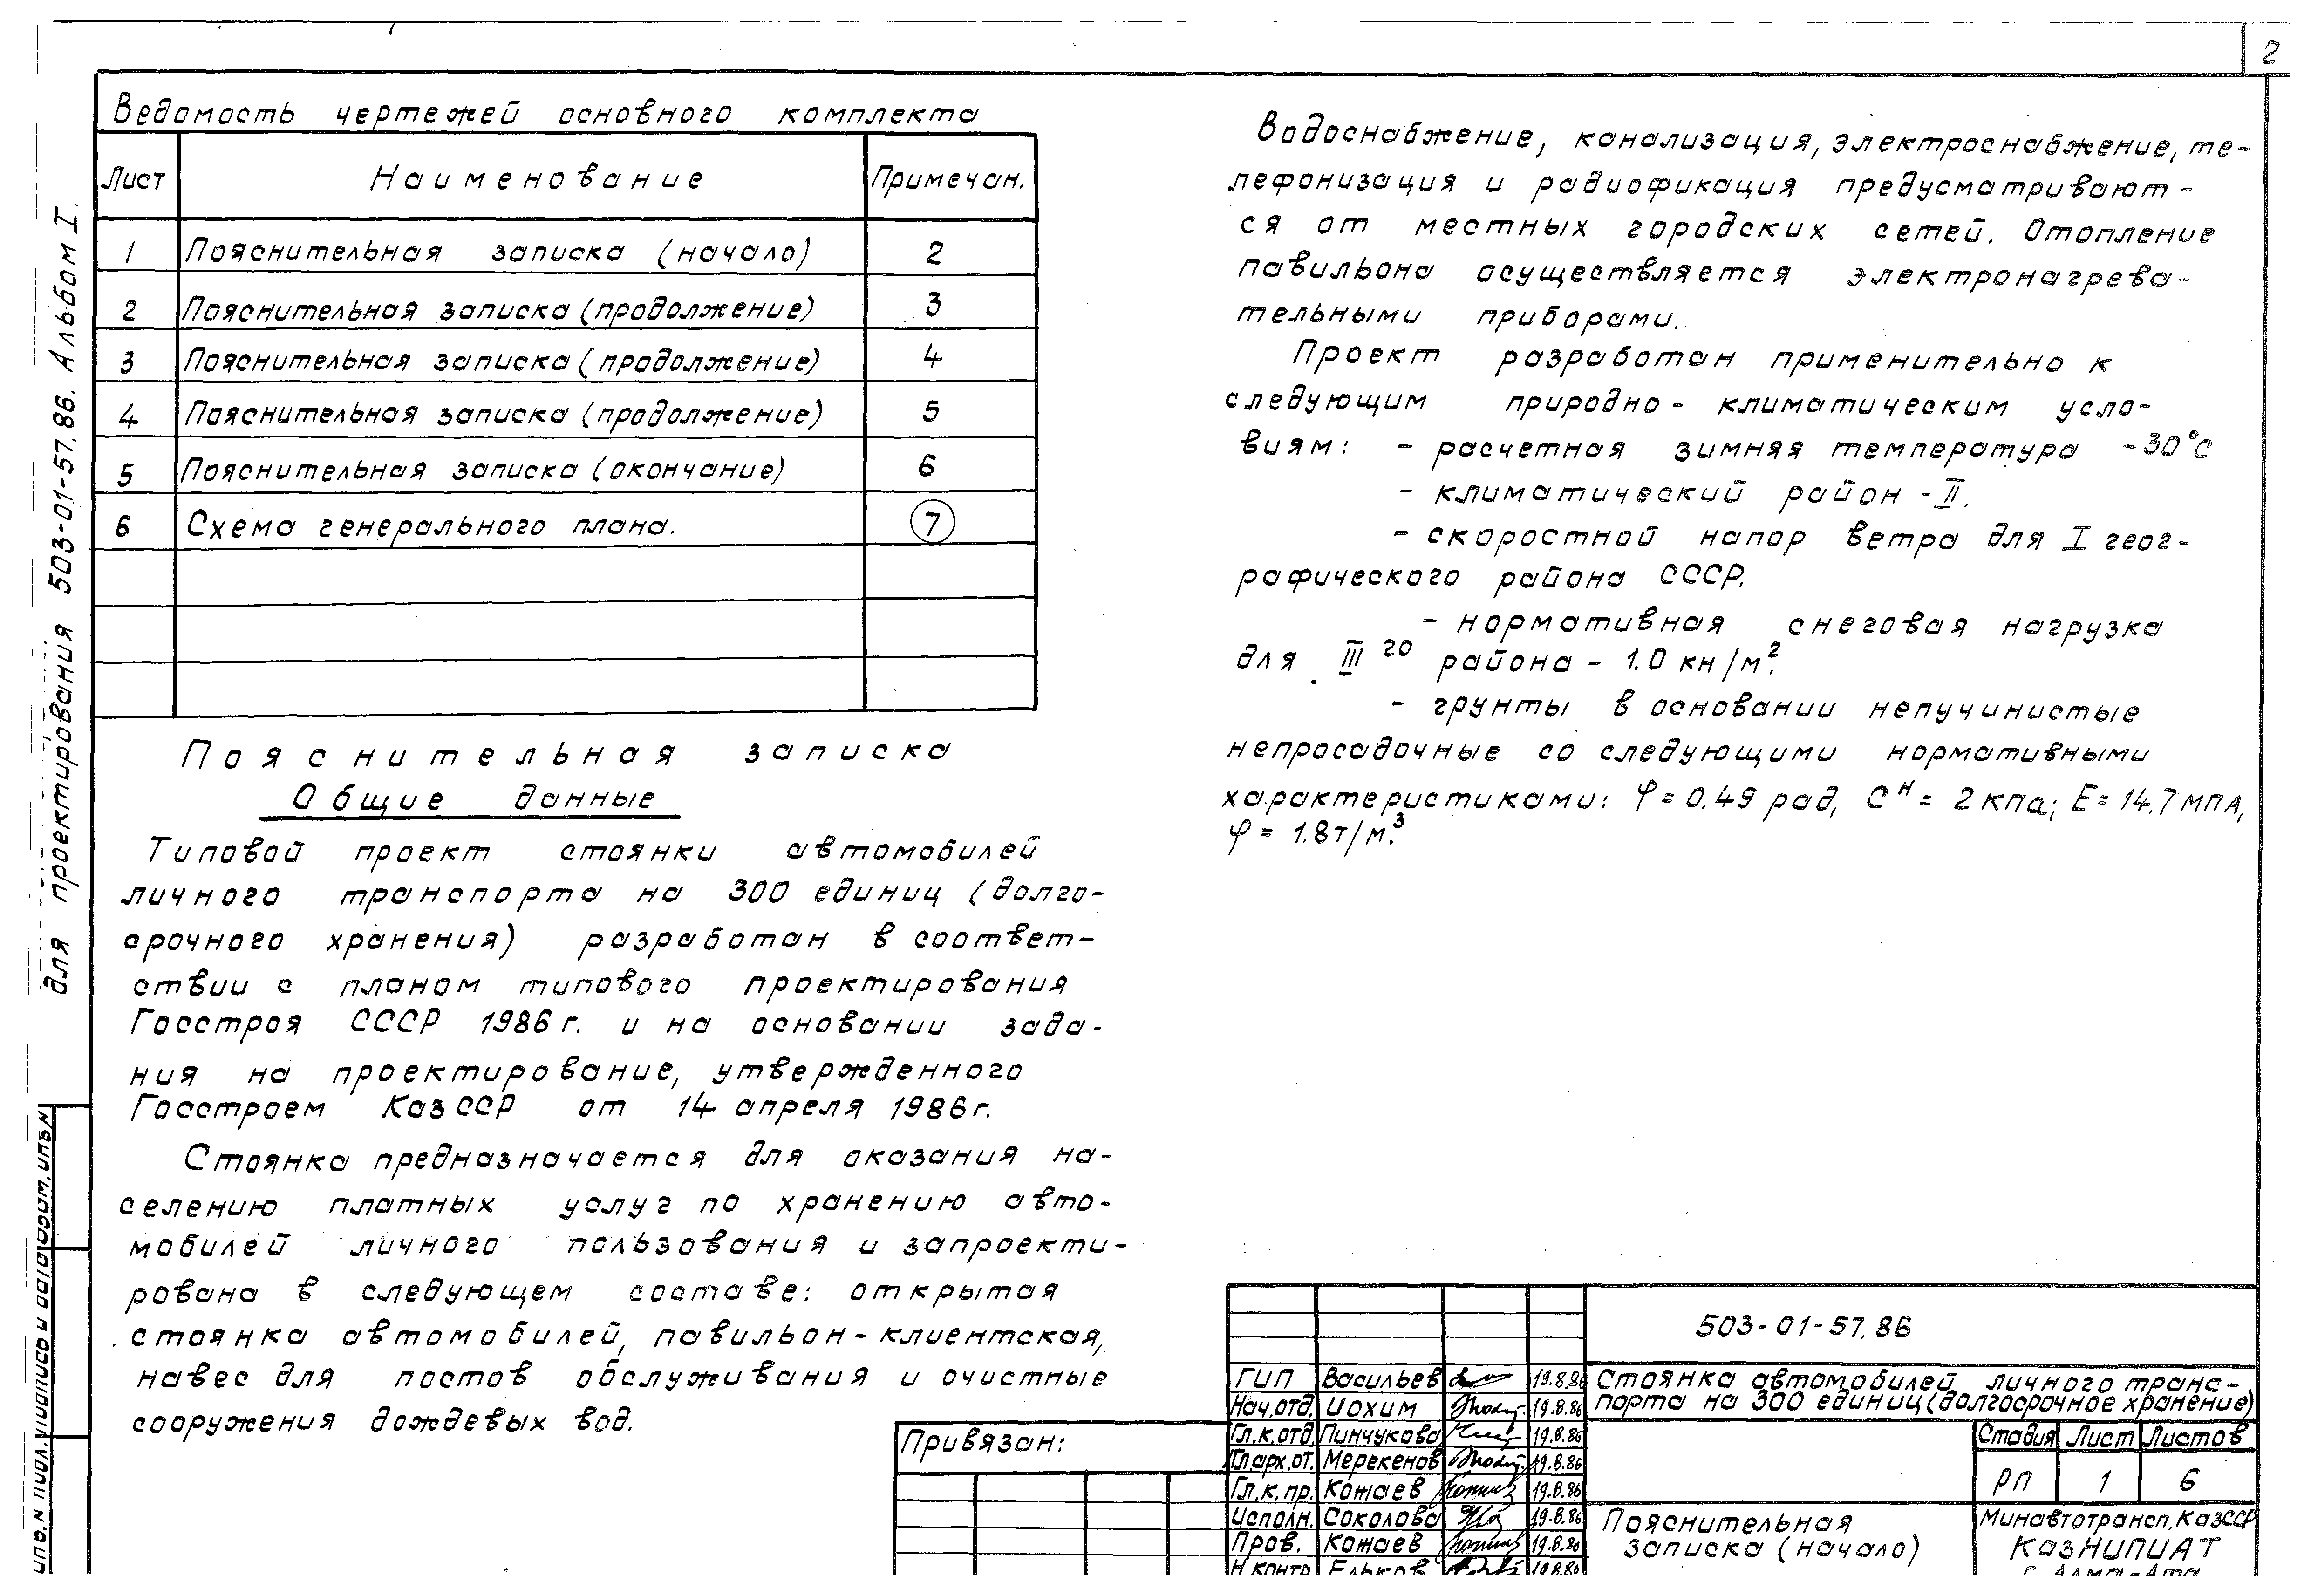 2
Ведомость чертежей основного комплекта
Лист Наименование Примечан.
1 Пояснительная записка (начало) 2
2 Пояснительная записка (продолжение) 3
3 Пояснительная записка (продолжение) 4
4 Пояснительная записка (продолжение) 5
5 Пояснительная записка (окончание) 6
6 Схема генерального плана. 7
Пояснительная записка
Общие данные
Типовой проект стоянки автомобилей
личного транспорта на 300 единиц (долго-
срочного хранения) разработан в соответ-
ствии с планом типового проектирования
Госстроя СССР 1986 г. и на основании зада-
ния на проектирование, утвержденного
Госстроем КазССР от 14 апреля 1986 г.
Стоянка предназначается для оказания на-
селению платных услуг по хранению авто-
мобилей личного пользования и запроекти-
рована в следующем составе: открытая
стоянка автомобилей, павильон-клиентская,
навес для постов обслуживания и очистные
сооружения дождевых вод.
Водоснабжение, канализация, электроснабжение, те-
лефонизация и радиофикация предусматривают-
ся от местных городских сетей. Отопление
павильона осуществляется электронагрева-
тельными приборами.
Проект разработан применительно к
следующим природно-климатическим усло-
виям: - расчетная зимняя температура -30°С
- климатический район - II.
- скоростной напор ветра для I геог-
рафического района СССР.
- нормативная снеговая нагрузка
для III го района - 1.0 кн/м².
- грунты в основании непучинистые
непросадочные со следующими нормативными
характеристиками: φ = 0.49 рад, Сᴴ = 2 кпа; Е = 14.7 МПА,
φ = 1.8 т/м³.
для проектирования 503-01-57.86. Альбом I.
Инв. N подл. Подпись и дата Взам. инв. N
Привязан:
503-01-57.86
ГИП Васильев 19.8.86
Нач.отд. Иохим 19.8.86
Гл.к.отд. Пинчукова 19.8.86
Гл.арх.от. Мерекенов 19.8.86
Гл.к.пр. Кожаев 19.8.86
Исполн. Соколова 19.8.86
Пров. Кожаев 19.8.86
Н.контр Ельков 19.8.86
Стоянка автомобилей личного транс-
порта на 300 единиц (долгосрочное хранение)
Стадия Лист Листов
РП 1 6
Пояснительная
записка (начало)
Минавтотрансп.КазССР
КазНИПИАТ
г. Алма-Ата